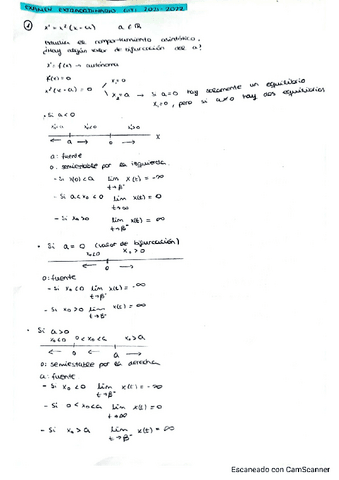 EXAMEN EXTRAORDINARIO 2021-2022
① x' = x²(x-a)   a ∈ ℝ
comportamiento asintótico.
¿Hay algún valor de bifurcación del a?
x' = f(x) → autónoma
f(x) = 0
x²(x-a) = 0   x₁=0
x₂ = a → Si a=0 hay solamente un equilibrio
x₁=0, pero si a≠0 hay dos equilibrios
· Si a<0
a   0   x
a: fuente
0: semiestable por la izquierda.
- Si x(0)<a   lim x(t) = -∞
t→β⁻
- Si a<x₀<0   lim x(t) = 0
t→∞
- Si x₀>0   lim x(t) = ∞
t→β⁻
· Si a = 0 (valor de bifurcación)
x₀<0   x₀>0
0
0: fuente
- Si x₀<0   lim x(t) = -∞
t→β⁻
- Si x₀>0   lim x(t) = ∞
t→β⁻
· Si a>0
x₀<0   0<x₀<a   x₀>a
0   a
0: semiestable por la derecha
a: fuente
- Si x₀<0   lim x(t) = -∞
t→β⁻
- Si 0<x₀<a   lim x(t) = 0
t→∞
- Si x₀>a   lim x(t) = ∞
t→β⁻
Escaneado con CamScanner